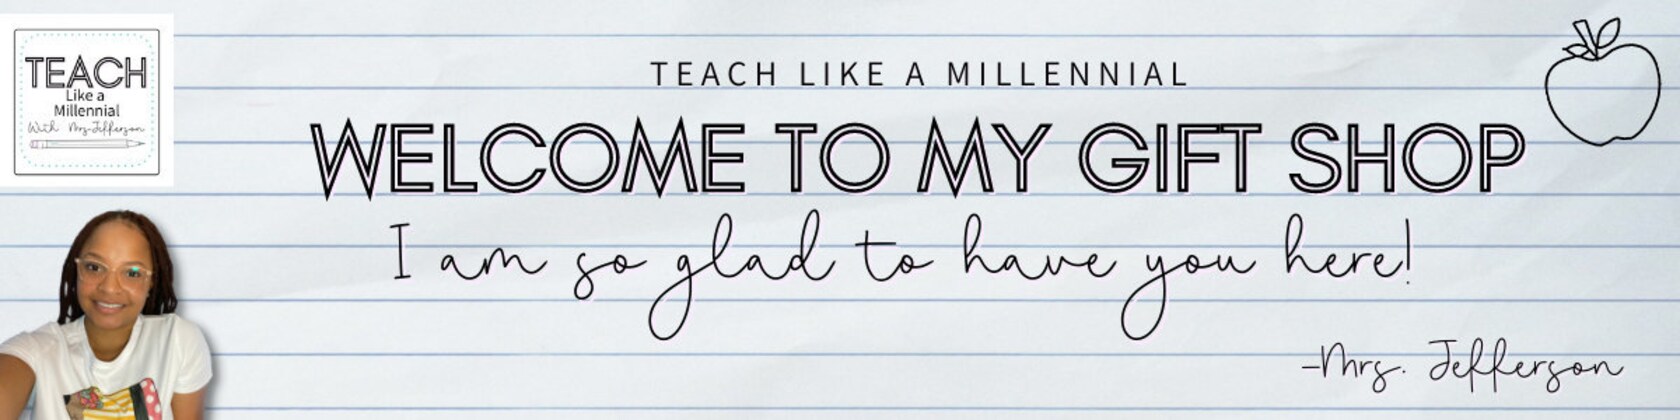 TEACH
Like a
Millennial
With Mrs. Jefferson
TEACH LIKE A MILLENNIAL
WELCOME TO MY GIFT SHOP
I am so glad to have you here!
-Mrs. Jefferson